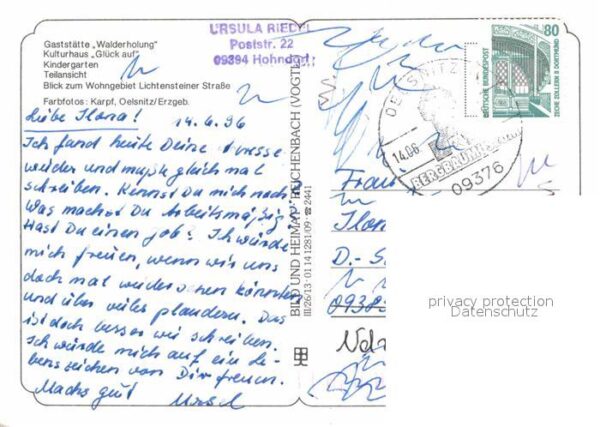 Gaststätte „Walderholung"
Kulturhaus „Glück auf"
Kindergarten
Teilansicht
Blick zum Wohngebiet Lichtensteiner Straße
Farbfotos: Karpf, Oelsnitz/Erzgeb.
URSULA RIEDEL
Poststr. 22
09394 Hohndorf
Liebe Ilona! 14.6.96
Ich fand heute Deine Adresse
wieder und muß gleich mal
schreiben. Kennst Du mich noch
Was machst Du Arbeitsmäßig
Hast Du einen Job? Ich würde
mich freuen, wenn wir uns
doch mal wiedersehen könnten
und über vieles plaudern. Das
ist doch besser wie schreiben.
Ich würde mich auf ein Le-
benszeichen von Dir freuen.
Machs gut Ursel
BILD UND HEIMAT REICHENBACH (VOGTL)
III/26/13 · 01 14 1281/09 · ☎ 2441
80
DEUTSCHE BUNDESPOST
ZECHE ZOLLERN II DORTMUND
OELSNITZ
14.06
BERGBAUMUSEUM
09376
Frau
Ilona
D.-S
0938
privacy protection
Datenschutz